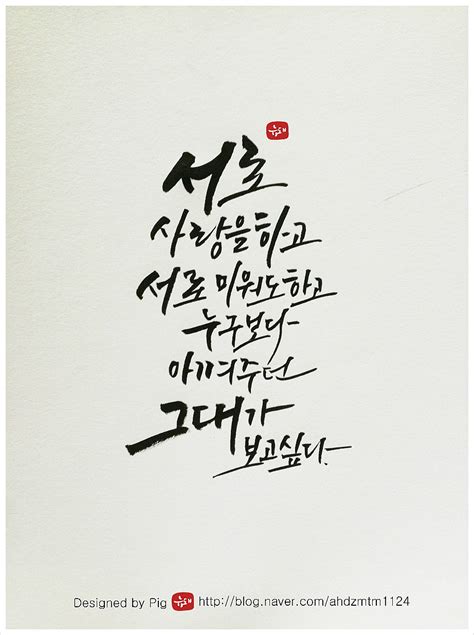 서로
사랑을하고
서로 미워도하고
누구보다
아껴주던
그대가
보고싶다.
Designed by Pig http://blog.naver.com/ahdzmtm1124